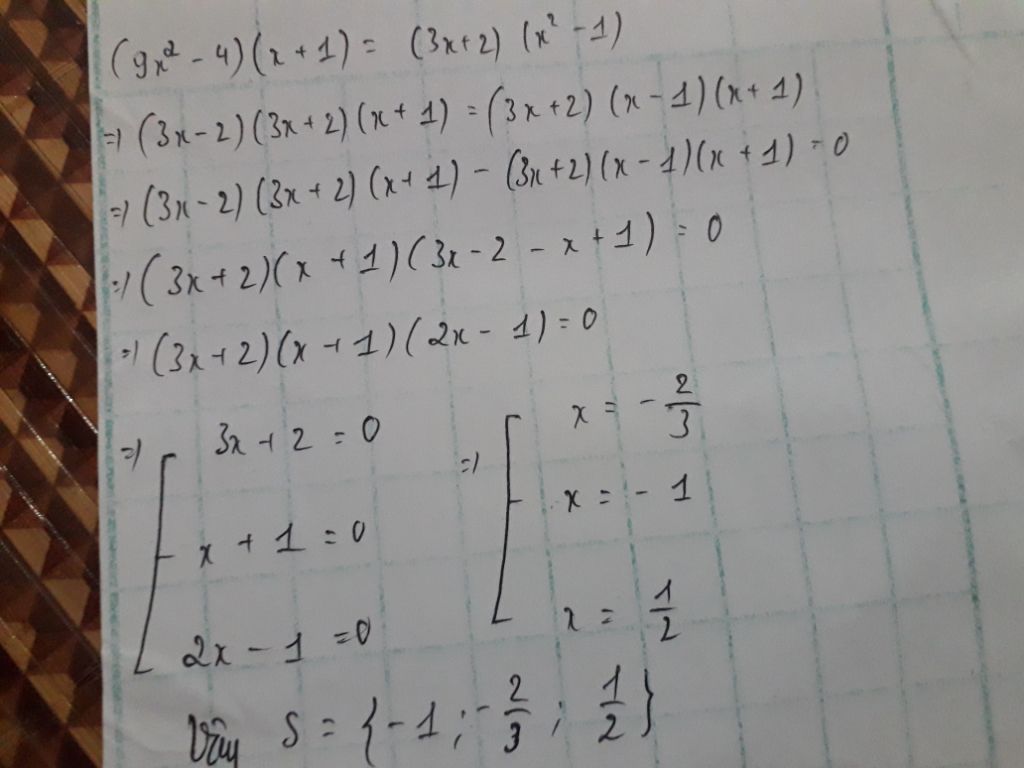 (9x² - 4)(x + 1) = (3x+2) (x² - 1)
=) (3x - 2)(3x + 2)(x + 1) = (3x + 2) (x - 1)(x + 1)
=) (3x - 2)(3x + 2)(x + 1) - (3x + 2)(x - 1)(x + 1) = 0
=) (3x + 2)(x + 1)(3x - 2 - x + 1) = 0
=) (3x + 2)(x + 1)(2x - 1) = 0
=) [ 3x + 2 = 0 =) [ x = - 2/3
x + 1 = 0 x = - 1
2x - 1 = 0 x = 1/2
Vậy S = { - 1 ; - 2/3 ; 1/2 }